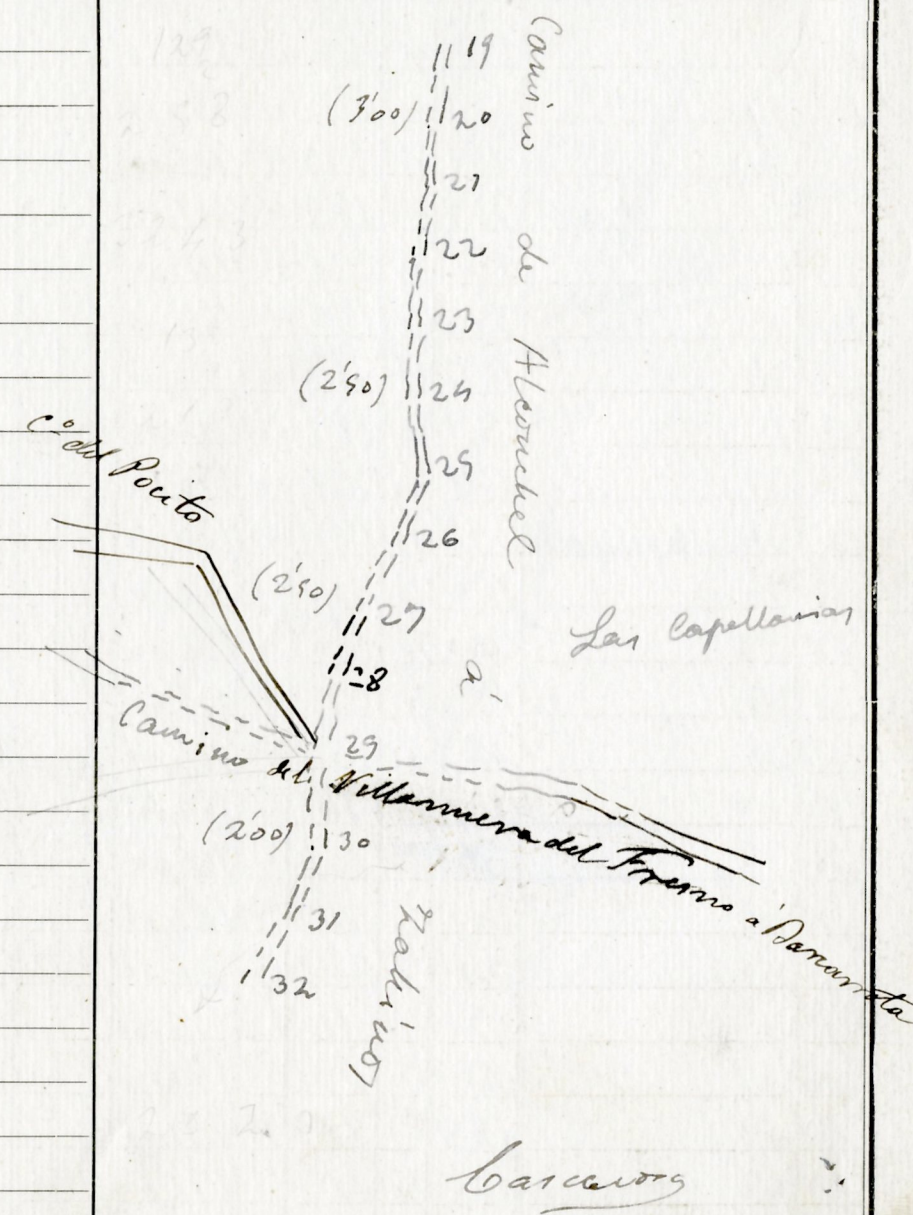 19
(3'00) 20
21
22
23
(2'50) 24
25
26
(2'50) 27
28
29
(2'00) 30
31
32
Camino de Alconchel á Zahinos
Cº del Pocito
Las Capellanias
Camino del Villanueva del Fresno á Barcarrota